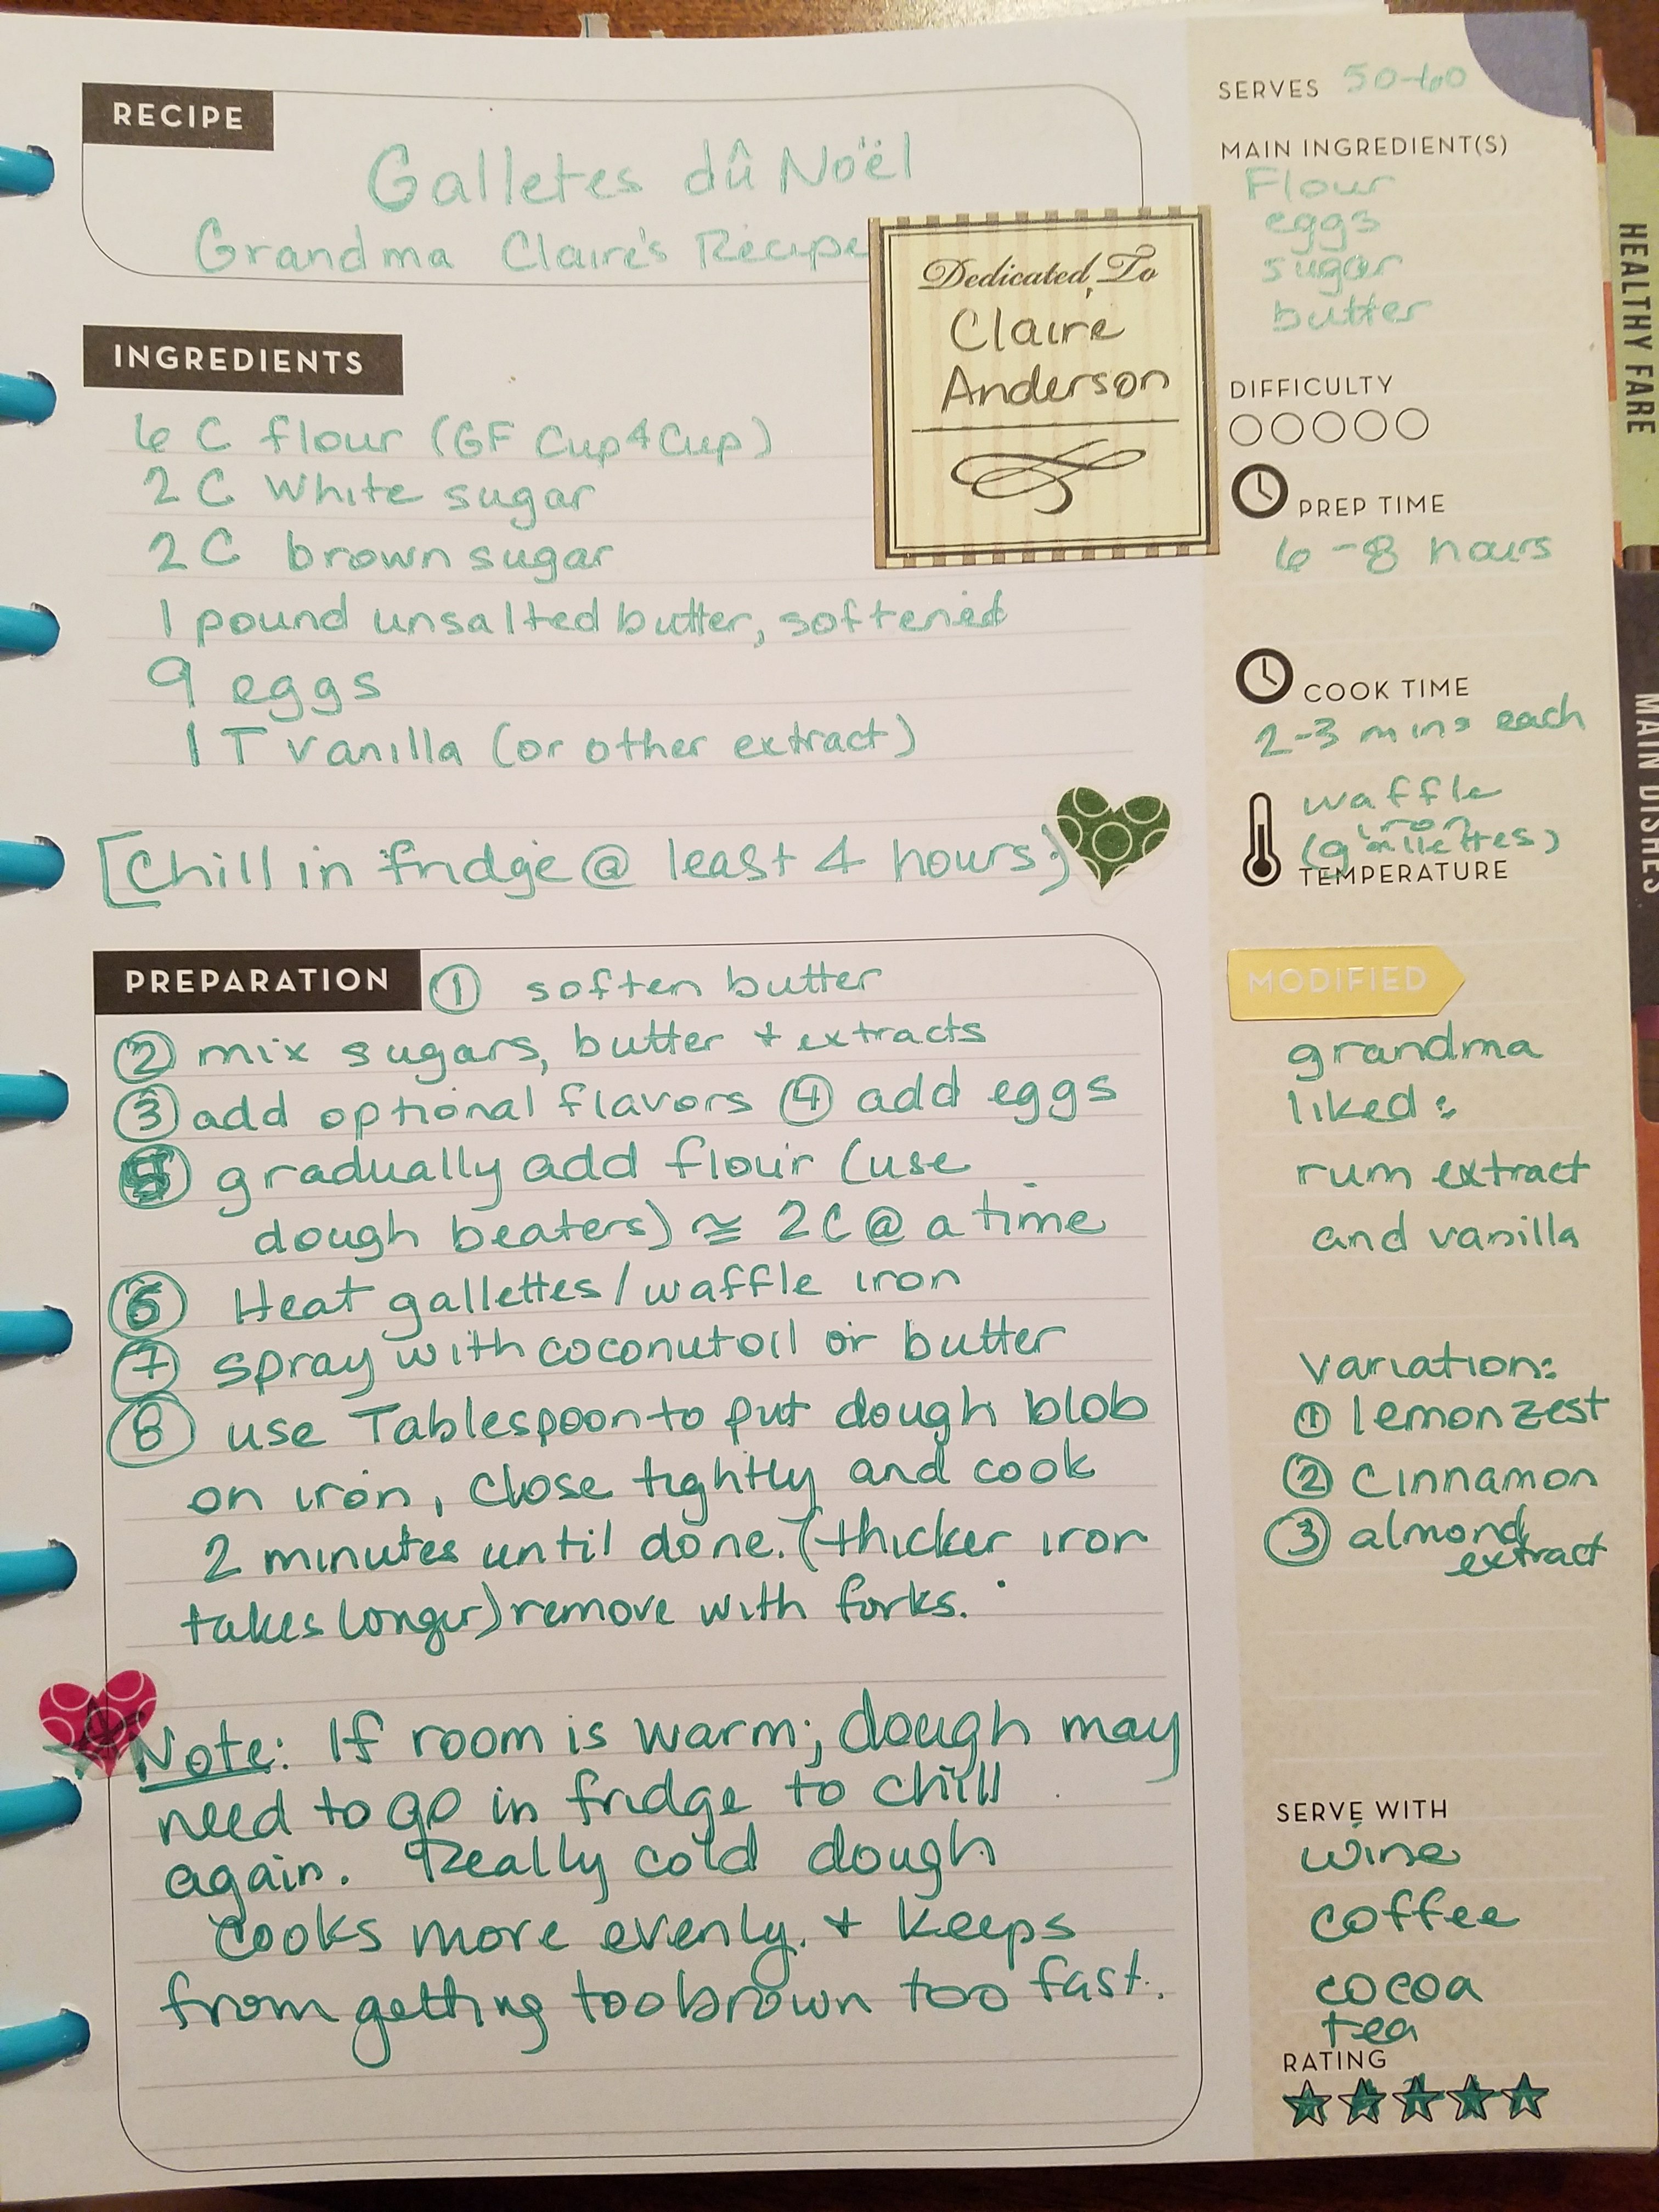 RECIPE
Galletes dû Noël
Grandma Claire's Recipe
Dedicated To
Claire
Anderson
INGREDIENTS
6 C flour (GF Cup4Cup)
2 C White sugar
2 C brown sugar
1 pound unsalted butter, softened
9 eggs
1 T vanilla (or other extract)
[Chill in fridge @ least 4 hours]
PREPARATION ① soften butter
② mix sugars, butter + extracts
③ add optional flavors ④ add eggs
⑤ gradually add flour (use
dough beaters) ≈ 2C @ a time
⑥ Heat gallettes/waffle iron
⑦ spray with coconut oil or butter
⑧ use Tablespoon to put dough blob
on iron, close tightly and cook
2 minutes until done. (thicker iron
takes longer) remove with forks.
Note: If room is warm; dough may
need to go in fridge to chill
again. Really cold dough
cooks more evenly. + keeps
from getting too brown too fast.
SERVES 50-60
MAIN INGREDIENT(S)
Flour
eggs
sugar
butter
DIFFICULTY
PREP TIME
6-8 hours
COOK TIME
2-3 mins each
waffle
iron
(gallettes)
TEMPERATURE
MODIFIED
grandma
liked:
rum extract
and vanilla
Variation:
① lemon zest
② cinnamon
③ almond
extract
SERVE WITH
wine
coffee
cocoa
tea
RATING
HEALTHY FARE
MAIN DISHES